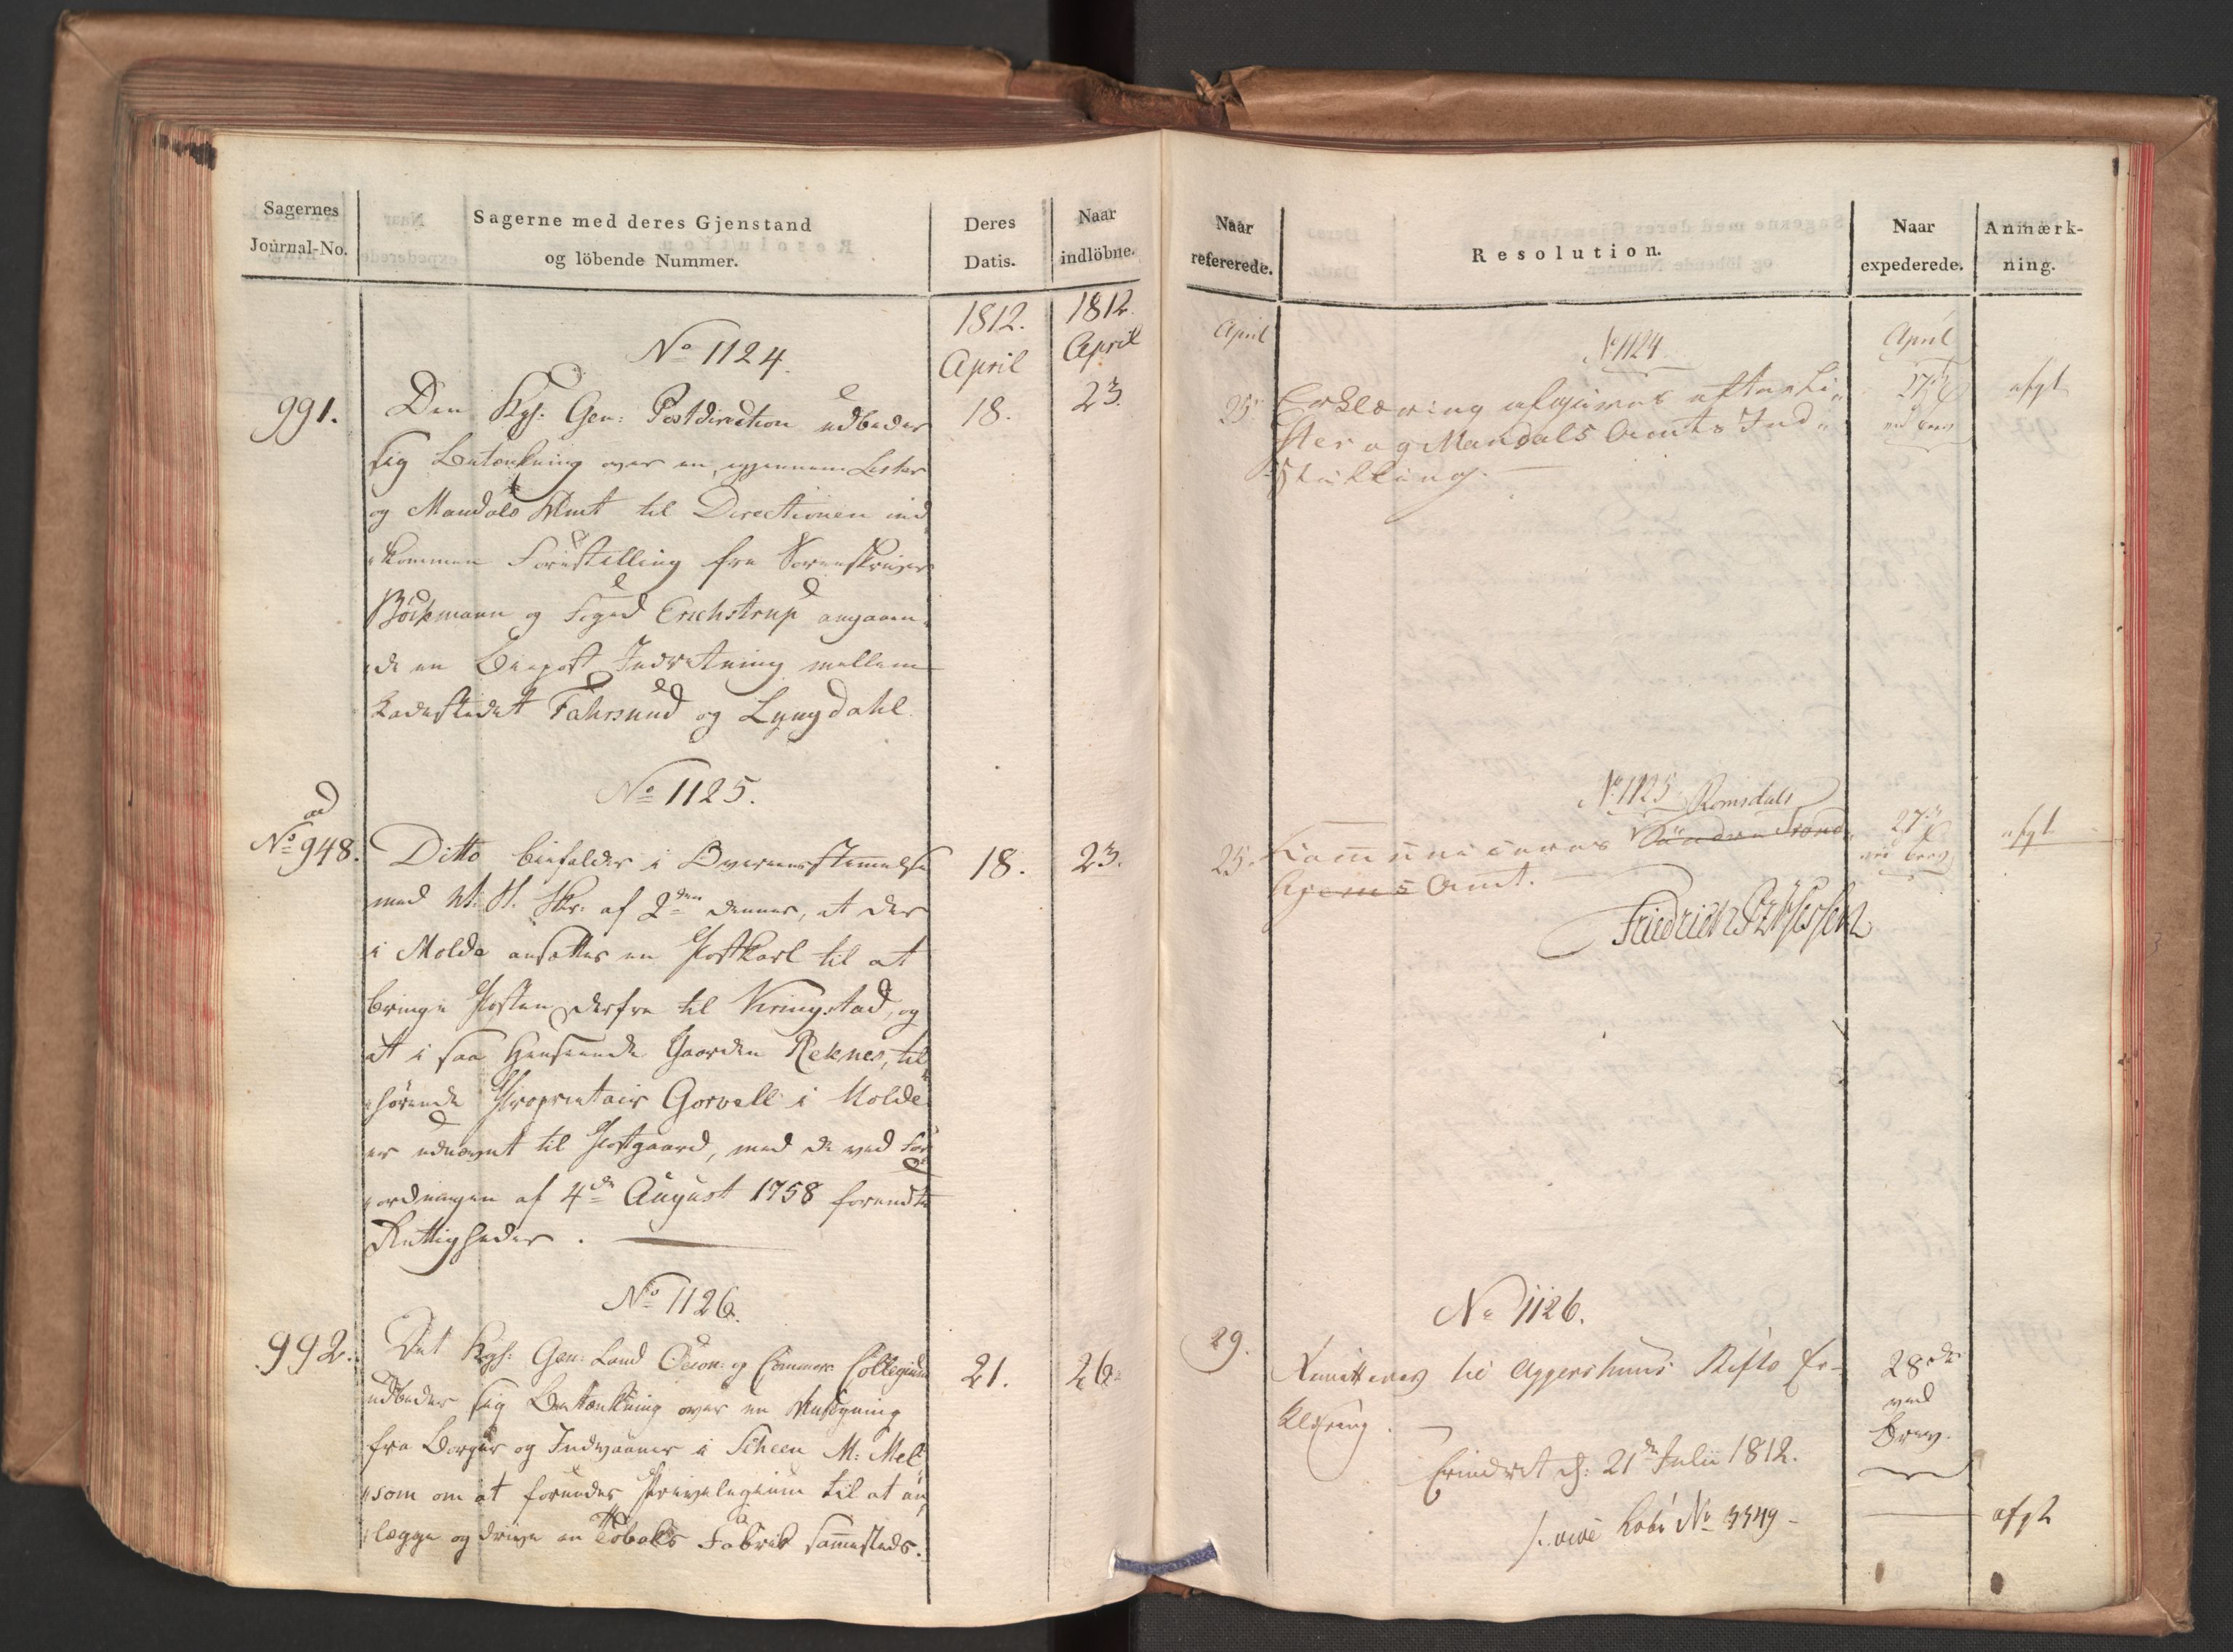 Sagernes
Journal-No.
Sagerne med deres Gjenstand
og löbende Nummer.
Deres
Datis.
Naar
indlöbne.
1812.
April
1812.
April
No 1124.
991.
Den Kgl: Gen: Postdirection udbeder
sig Betænkning over en, igjennem Lister
og Mandals Amt til Directionen ind
kommen Forestilling fra Sorenskriver
Böckmann og Foged Erichstrup angaaen
de en Biepost Indretning mellem
Ladestedet Fahrsund og Lyngdahl.
18.
23.
No 1125.
ad
No 948.
Ditto bifalder i Overeensstemmelse
med St. Skr: af 2den dennes, at der
i Molde ansættes en Postkarl til at
bringe Posten derfra til Veringstad, og
at i saa Henseende Gaarden Reknes, til
hörende Proprietair Gørvell i Molde
er udnævnt til Postgaard, med de ved For
ordningen af 4de August 1758 forundte
Rettigheder.
18.
23.
No 1126.
992.
Det Kgl: Gen: Land Oecon: og Commerc Collegium
udbeder sig Betænkning over en Ansögning
fra Borger og Indvaaner i Scheen M: Mel
som om at forundes Privelegium til at an
lægge og drive en Tobaks Fabrik sammesteds.
21.
26.
Naar
refererede.
Resolution.
Naar
expederede.
Anmærk-
ning.
April
April
No 1124.
25.
Erklæring afgives efter Li-
ster og Mandals Amts Ind-
stilling.
27.
ved Brev
afgt
No 1125.
Romsdals
25.
Communiceres Söndre Trond
hjems Amt.
27.
ved Brev
afgt
No 1126.
29.
Remitteres til Aggershuus Stifts Er-
klæring.
28de
ved
Brev.
Erindret d: 21de Julii 1812.
No 3549
afgt